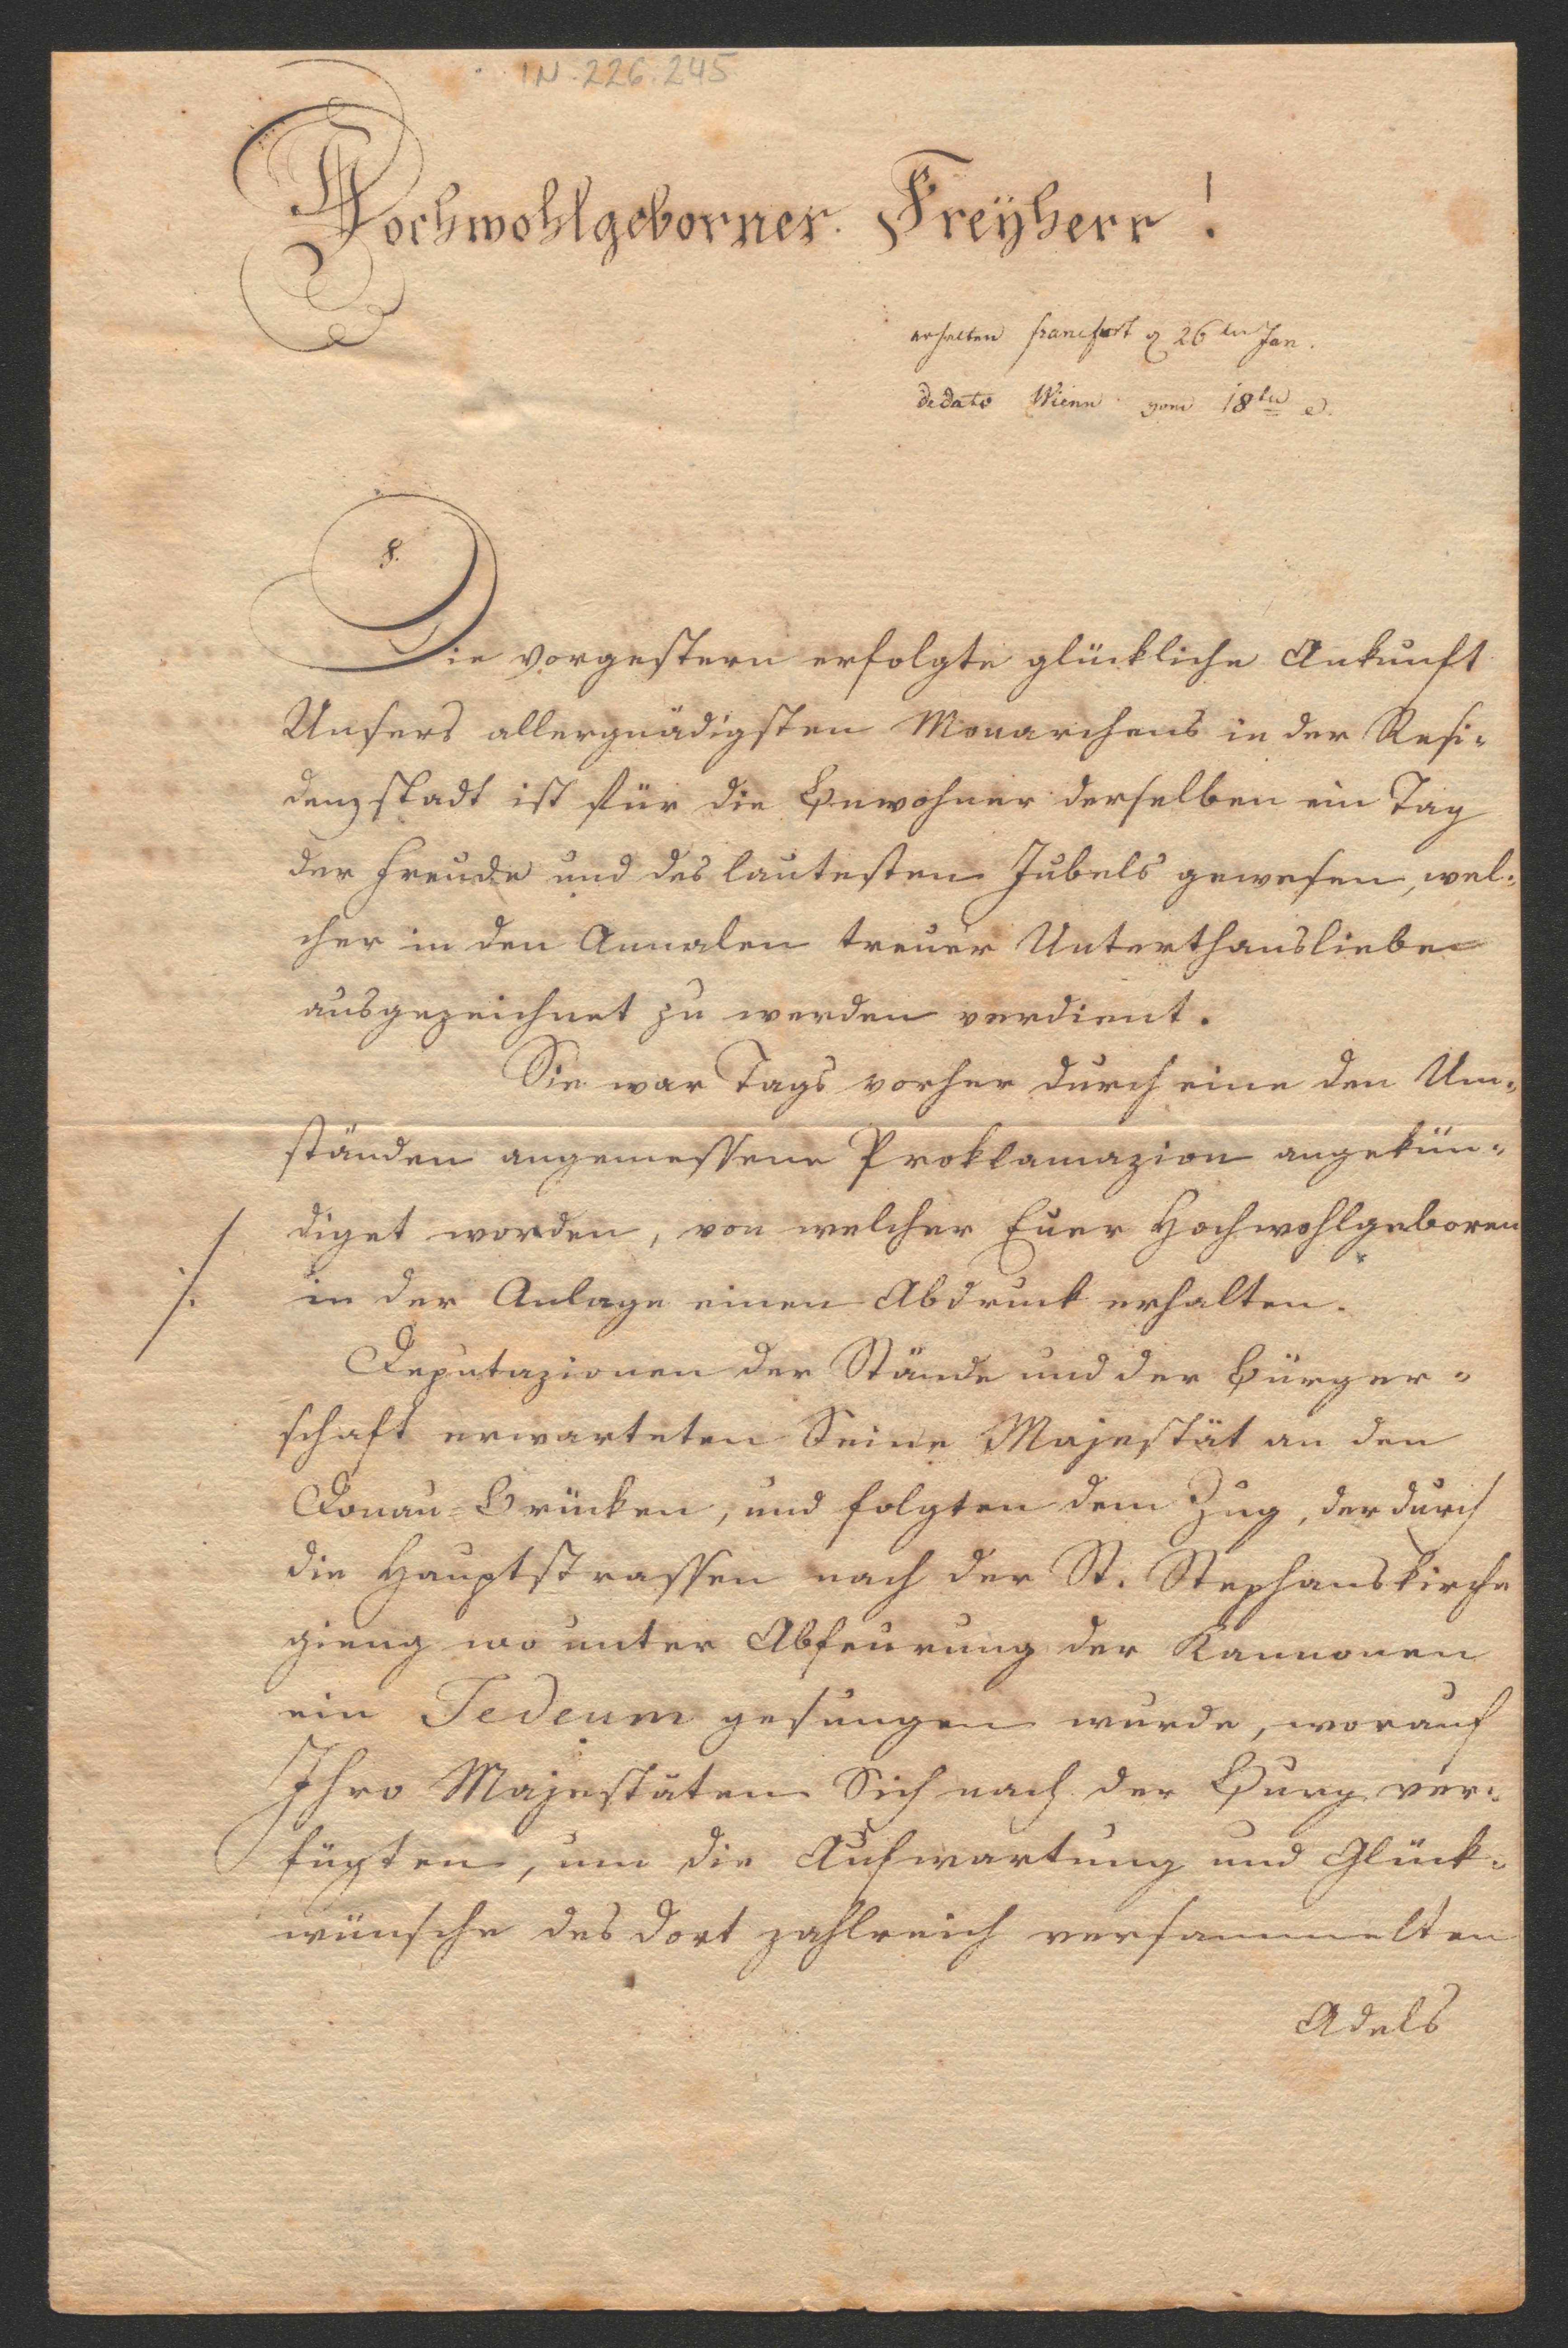 IN. 226.245
Hochwohlgeborner Freÿherr!
erhalten francfurt 26ten Jan.
de dato Wienn vom 18ten
8.
Die vorgestern erfolgte glückliche Ankunft
Unsers allergnädigsten Monarchens in der Resi-
denzstadt ist für die Bewohner derselben ein Tag
der Freude und des lautesten Jubels gewesen, wel-
cher in den Annalen treuer Unterthansliebe
ausgezeichnet zu werden verdient.
Sie war Tags vorher durch eine den Um-
ständen angemessene Proklamazion angekün-
diget worden, von welcher Euer Hochwohlgeboren
./. in der Anlage einen Abdruck erhalten.
Deputazionen der Stände und der Bürger-
schaft erwarteten Seine Majestät an den
Donau-Brücken, und folgten dem Zug, der durch
die Hauptstrassen nach der St. Stephanskirche
gieng wo unter Abfeurung der Kannonen
ein Tedeum gesungen wurde, worauf
Ihro Majestäten Sich nach der Burg ver-
fügten, um die Aufwartung und Glück-
wünsche des dort zahlreich versammelten
Adels